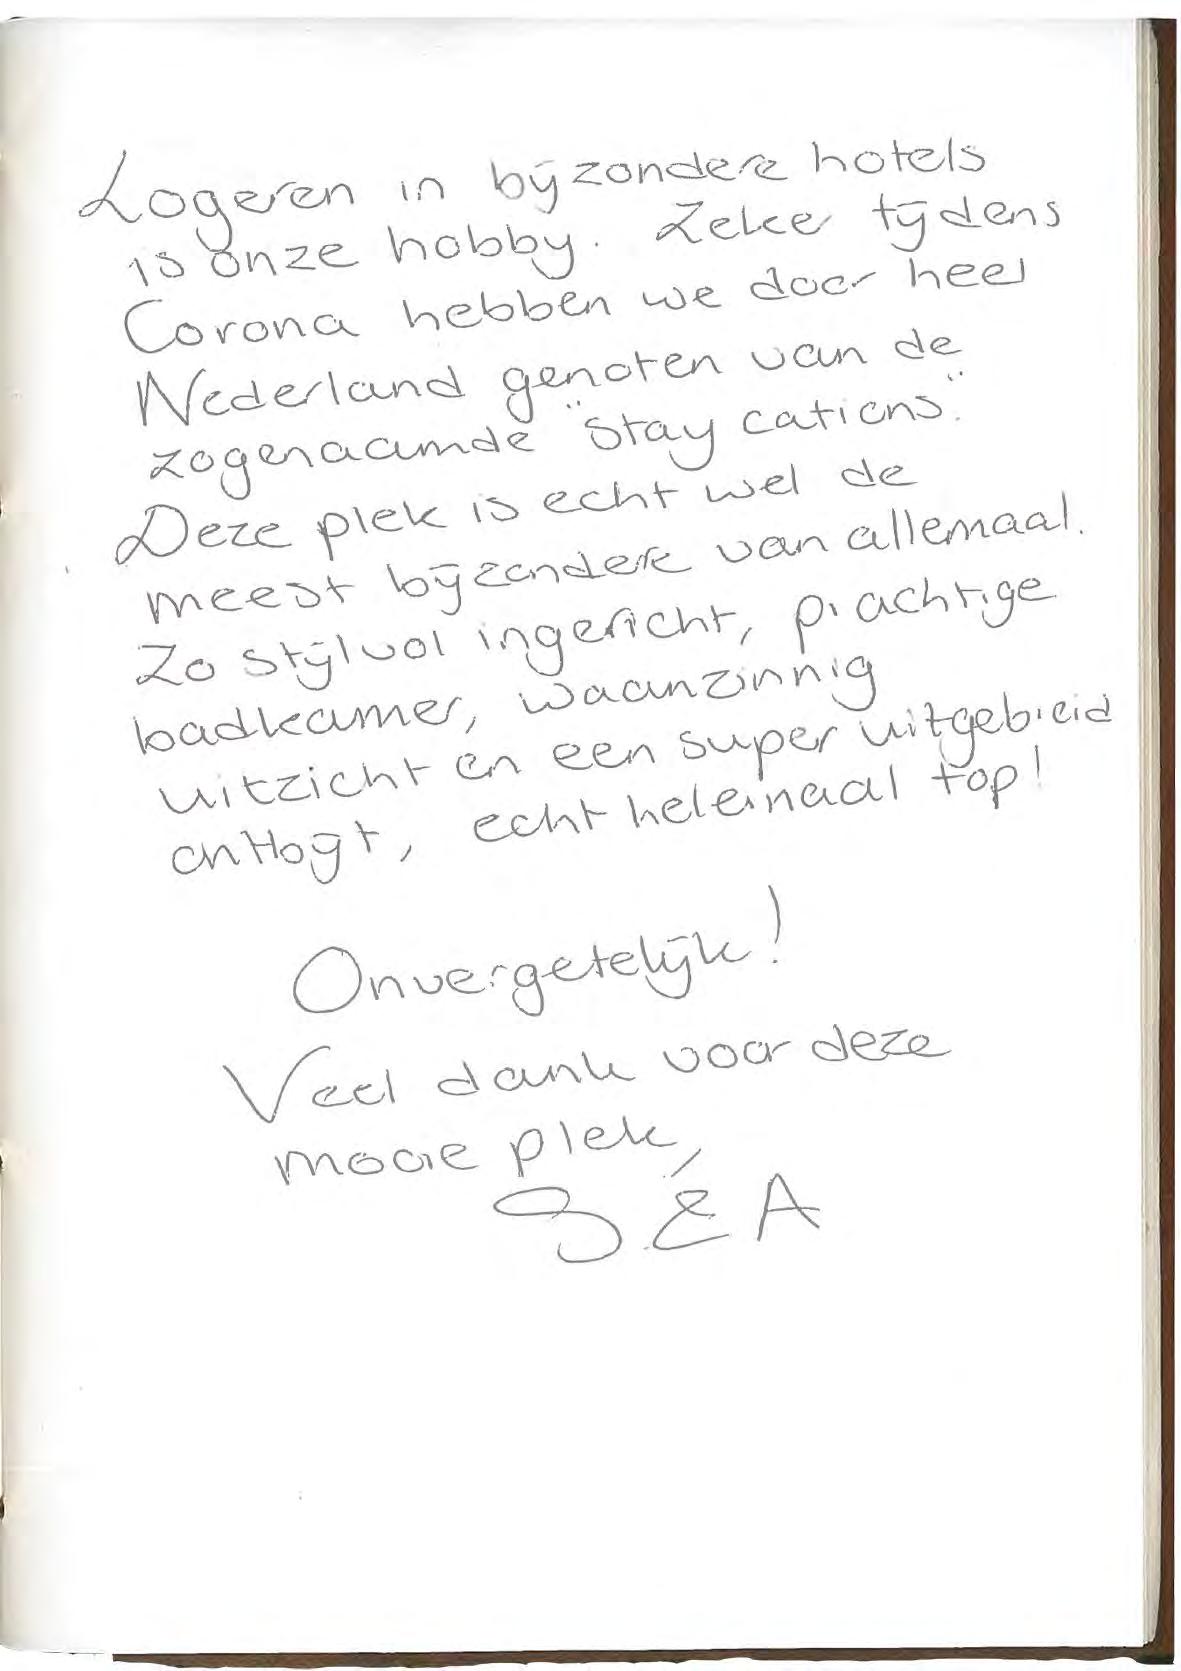 Logeren in bijzondere hotels
is onze hobby. Zeker tijdens
Corona hebben we door heel
Nederland genoten van de
zogenaamde "stay cations".
Deze plek is echt wel de
meest bijzondere van allemaal.
Zo stijlvol ingericht, prachtige
badkamer, waanzinnig
uitzicht en een super uitgebreid
ontbijt, echt helemaal top!
Onvergetelijk!
Veel dank voor deze
mooie plek,
S & A